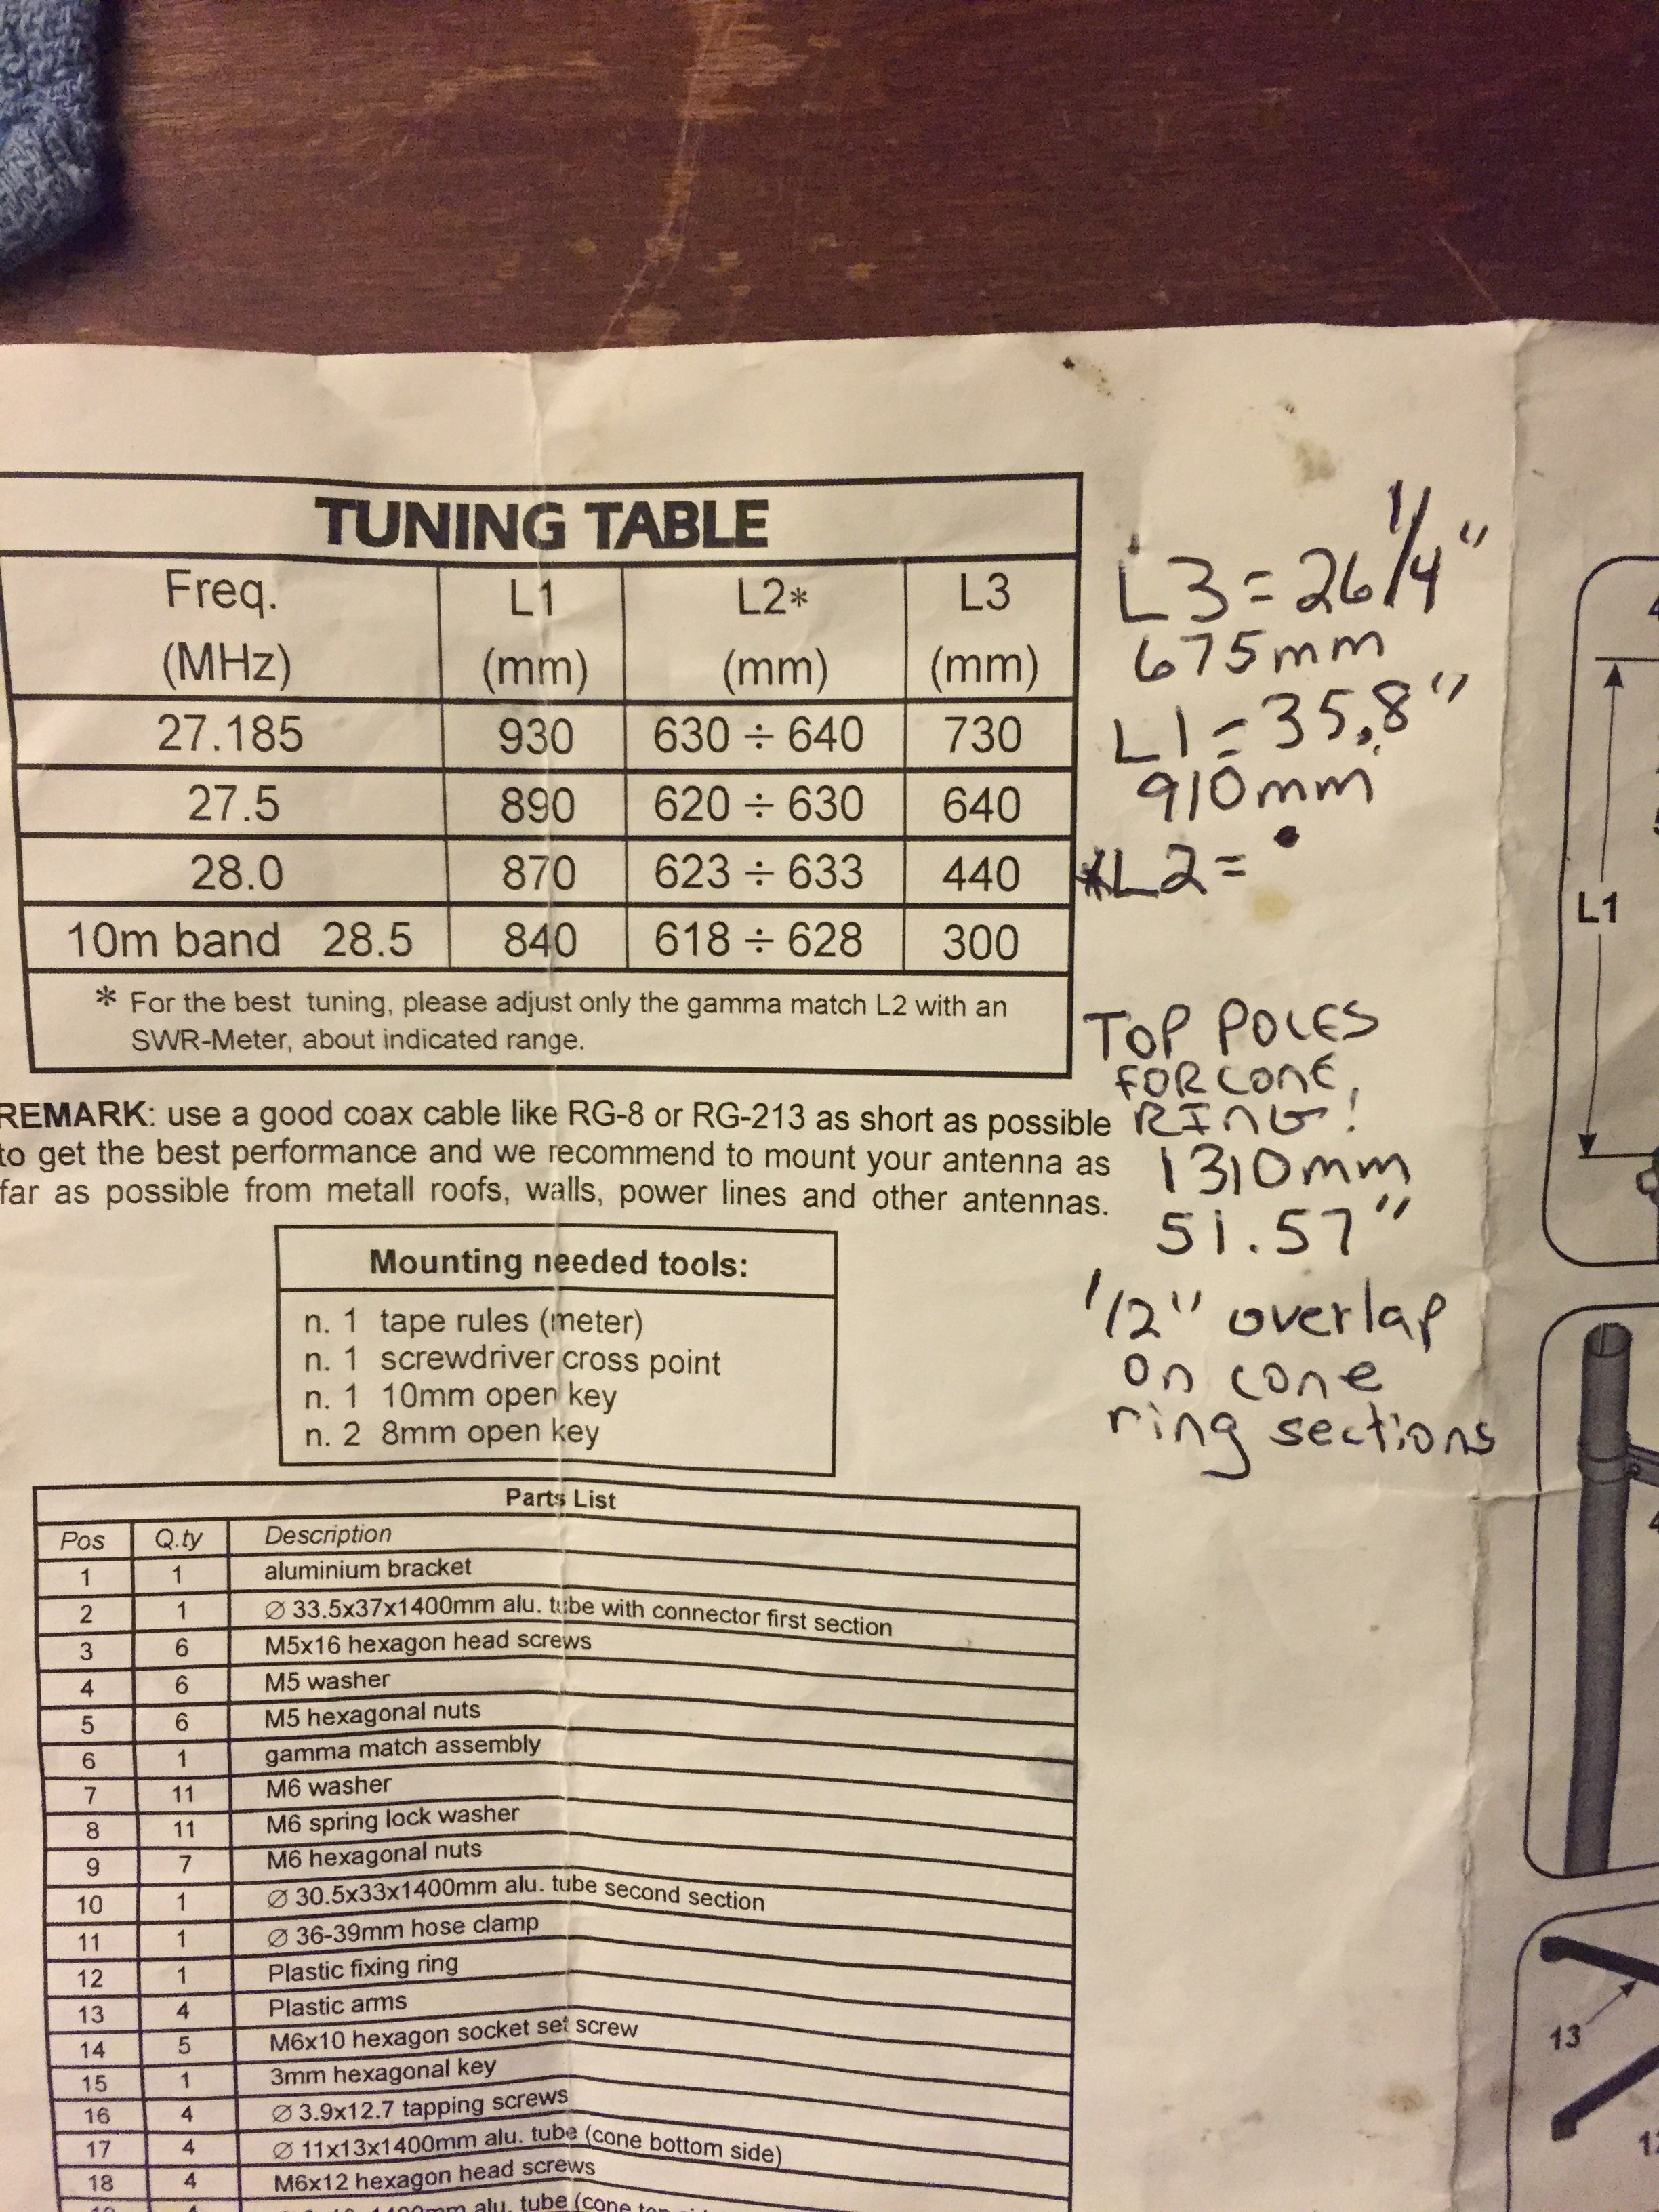 TUNING TABLE
Freq. (MHz) L1 (mm) L2* (mm) L3 (mm)
27.185 930 630 ÷ 640 730
27.5 890 620 ÷ 630 640
28.0 870 623 ÷ 633 440
10m band 28.5 840 618 ÷ 628 300
* For the best tuning, please adjust only the gamma match L2 with an
SWR-Meter, about indicated range.
L3 = 26 1/4"
675mm
L1 = 35.8"
910mm
*L2 =
TOP POLES
FOR CONE
RING!
1310mm
51.57"
1/2" overlap
on cone
ring sections
REMARK: use a good coax cable like RG-8 or RG-213 as short as possible
to get the best performance and we recommend to mount your antenna as
far as possible from metall roofs, walls, power lines and other antennas.
Mounting needed tools:
n. 1 tape rules (meter)
n. 1 screwdriver cross point
n. 1 10mm open key
n. 2 8mm open key
Parts List
Pos Q.ty Description
1 1 aluminium bracket
2 1 Ø 33.5x37x1400mm alu. tube with connector first section
3 6 M5x16 hexagon head screws
4 6 M5 washer
5 6 M5 hexagonal nuts
6 1 gamma match assembly
7 11 M6 washer
8 11 M6 spring lock washer
9 7 M6 hexagonal nuts
10 1 Ø 30.5x33x1400mm alu. tube second section
11 1 Ø 36-39mm hose clamp
12 1 Plastic fixing ring
13 4 Plastic arms
14 5 M6x10 hexagon socket set screw
15 1 3mm hexagonal key
16 4 Ø 3.9x12.7 tapping screws
17 4 Ø 11x13x1400mm alu. tube (cone bottom side)
18 4 M6x12 hexagon head screws
alu. tube (cone
L1
13